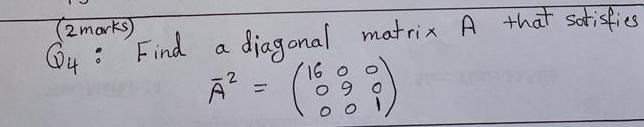 (2 marks)
Q4: Find a diagonal matrix A that satisfies
Ā² = (16 0 0
0 9 0
0 0 1)